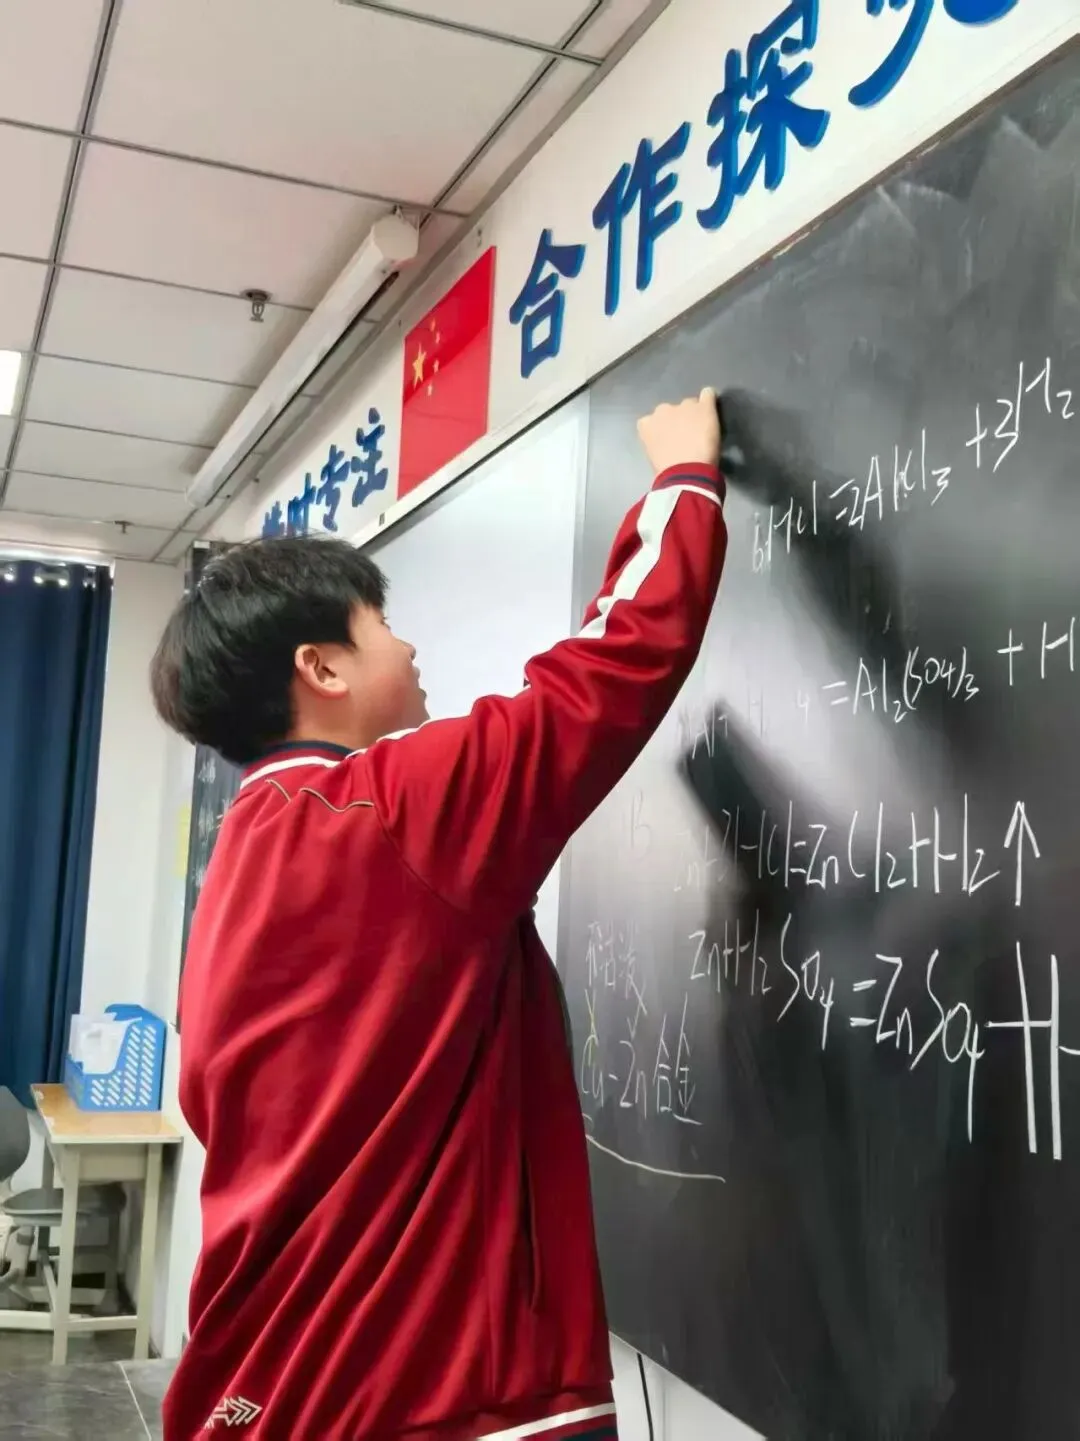 合作探究
时专注
6HCl=2AlCl3+3H2
=Al2(SO4)3+H
Zn+2HCl=ZnCl2+H2↑
Zn+H2SO4=ZnSO4+H
Cu-Zn合金